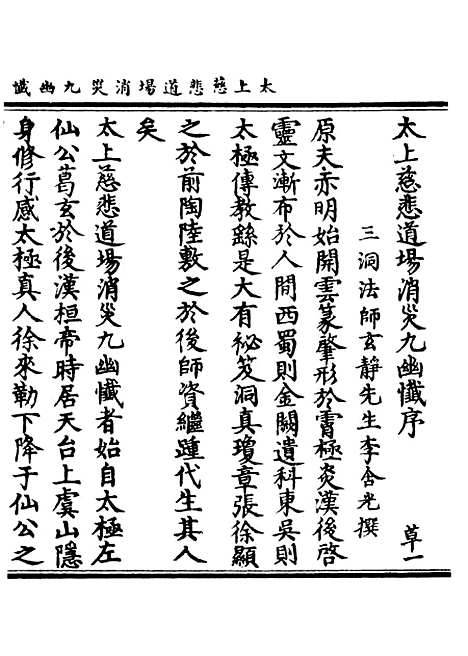 太上慈悲道場消災九幽懺
太上慈悲道場消災九幽懺序　草一
三洞法師玄靜先生李含光撰
原夫赤明始開雲篆肇形於霄極炎漢後啓
靈文漸布於人間西蜀則金闕遺科東吳則
太極傳教繇是大有祕笈洞真瓊章張徐顯
之於前陶陸敷之於後師資繼踵代生其人
矣
太上慈悲道場消災九幽懺者始自太極左
仙公葛玄於後漢桓帝時居天台上虞山隱
身修行感太極真人徐來勒下降于仙公之